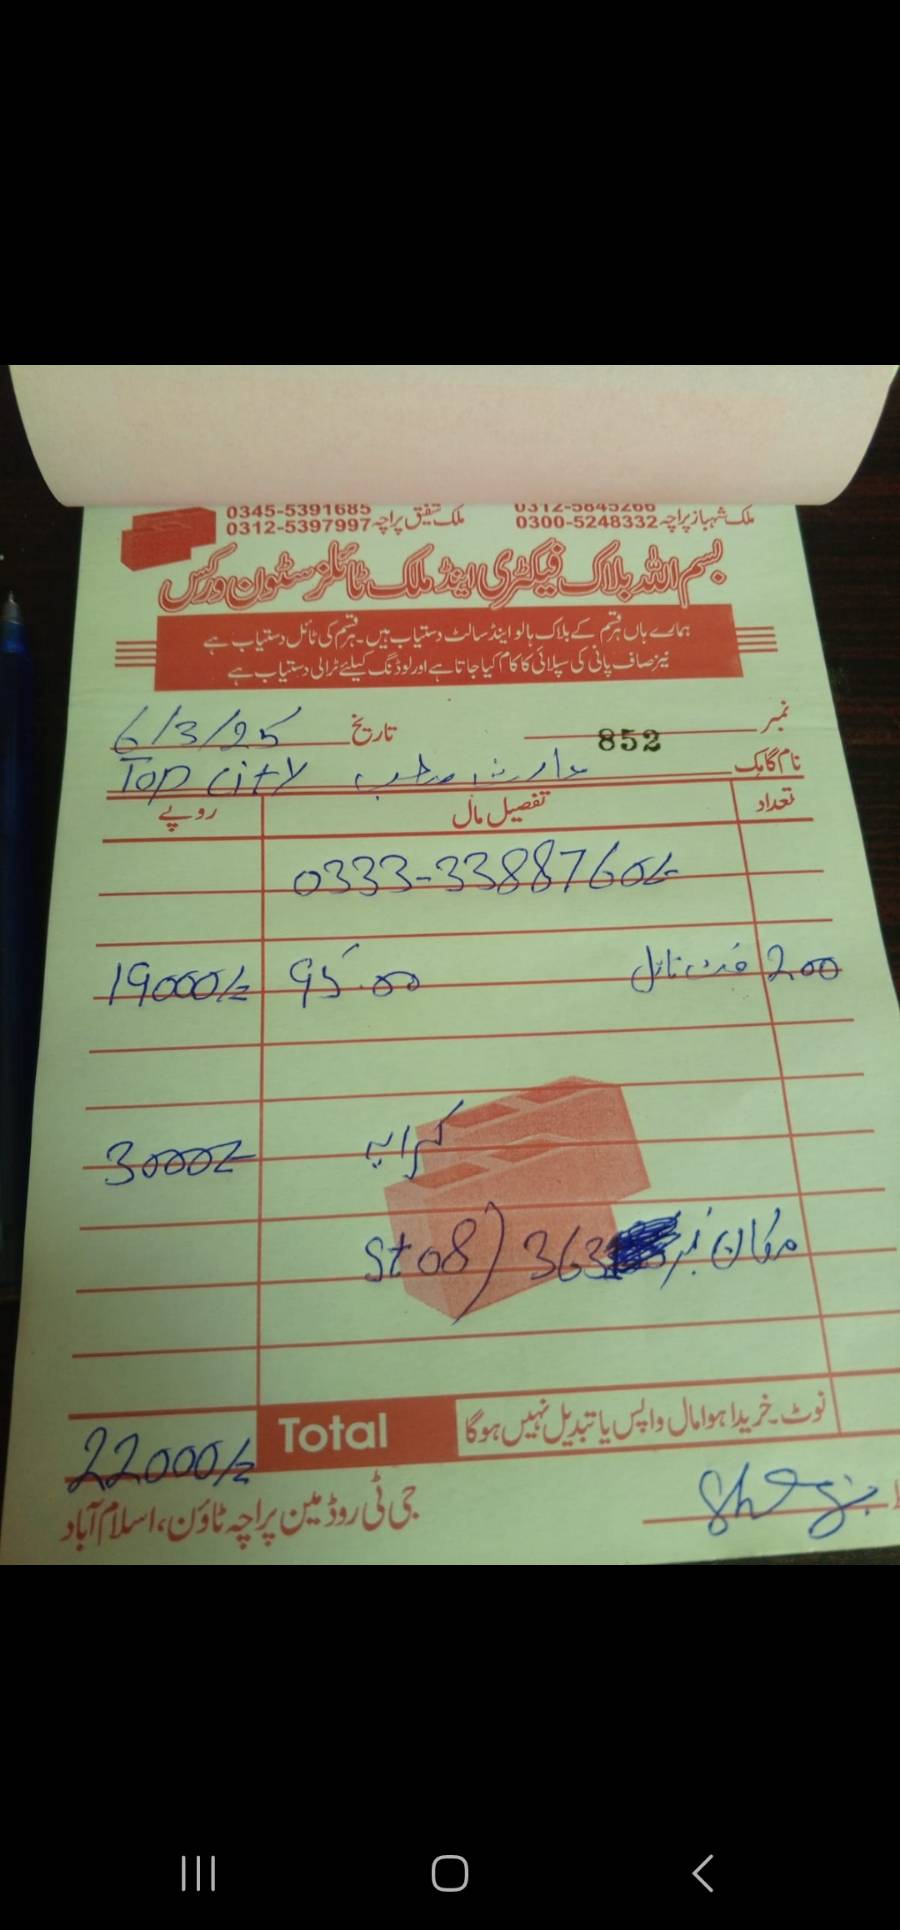 0345-5391685
ملک شفیق پراچہ 0312-5397997
0312-5845266
ملک شہباز پراچہ 0300-5248332
بسم اللہ بلاک فیکٹری اینڈ ملک ٹائلز سٹون ورکس
ہمارے ہاں ہر قسم کے بلاک ہالو اینڈ سالٹ دستیاب ہیں۔ ہر قسم کی ٹائل دستیاب ہے
نیز صاف پانی کی سپلائی کا کام کیا جاتا ہے اور لوڈنگ کیلئے ٹرالی دستیاب ہے
نمبر 852 تاریخ 6/3/25
نام گاہک وارث صاحب Top City
تعداد تفصیل مال روپے
0333-3388760
200 فٹ ٹائل 95.00 19000/=
کرایہ 3000/=
مکان نمبر 363 (St 08
نوٹ۔ خریدا ہوا مال واپس یا تبدیل نہیں ہوگا Total 22000/=
جی ٹی روڈ مین پراچہ ٹاؤن، اسلام آباد